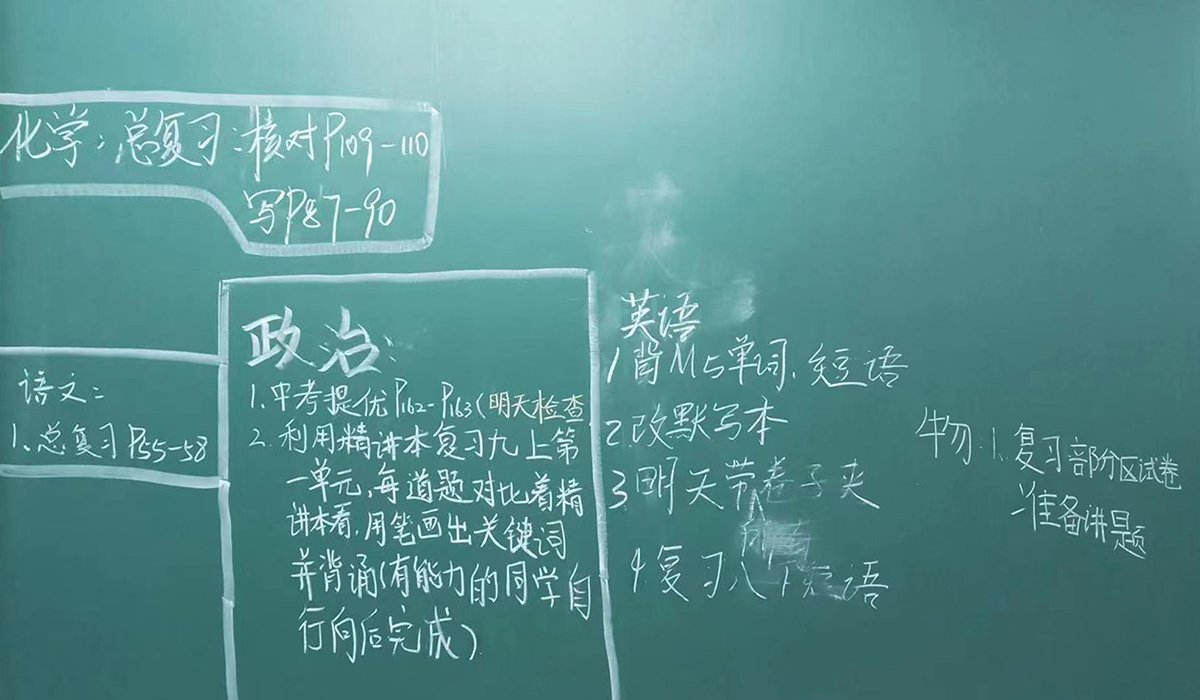 化学：总复习：核对P109-110
写P87-90
语文：
1.总复习P55-58
政治：
1.中考提优P162-P163(明天检查
2.利用精讲本复习九上第
一单元,每道题对比着精
讲本看,用笔画出关键词
并背诵(有能力的同学自
行向后完成)
英语
1背M5单词、短语
2.改默写本
3.明天带卷子夹
4.复习八下短语
物：1.复习部分区试卷
准备讲题